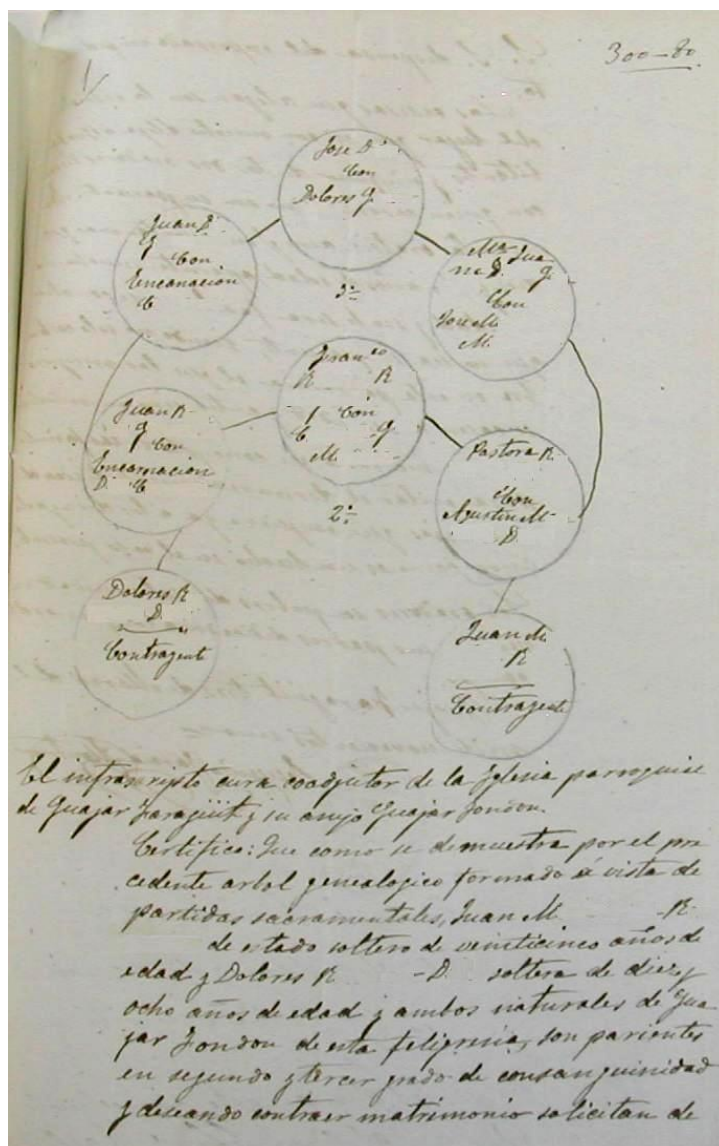 300-80
Jose D.
Con
Dolores J.
Juan D.
J
Con
Encarnacion
C
Ma Jua
na D. J.
Con
Jose M.
M.
3º
Franco
R R
y Con
C J.
M.
Juan R
J
Con
Encarnacion
D. C
Pastora R.
Con
Agustin M
D.
2º
Dolores R
D.
Contragente
Juan M.
R
Contragente
El infrascripto cura coadjutor de la Iglesia parroquial
de Guajar Faragüit y su anejo Guajar Fondon.
Certifico: Que como se demuestra por el pre
cedente arbol genealogico formado á vista de
partidas sacramentales, Juan M. R.
de estado soltero de veinticinco años de
edad y Dolores R - D. soltera de diez y
ocho años de edad y ambos naturales de Gua
jar Fondon de esta feligresia, son parientes
en segundo y tercer grado de consanguinidad
y deseando contraer matrimonio solicitan de